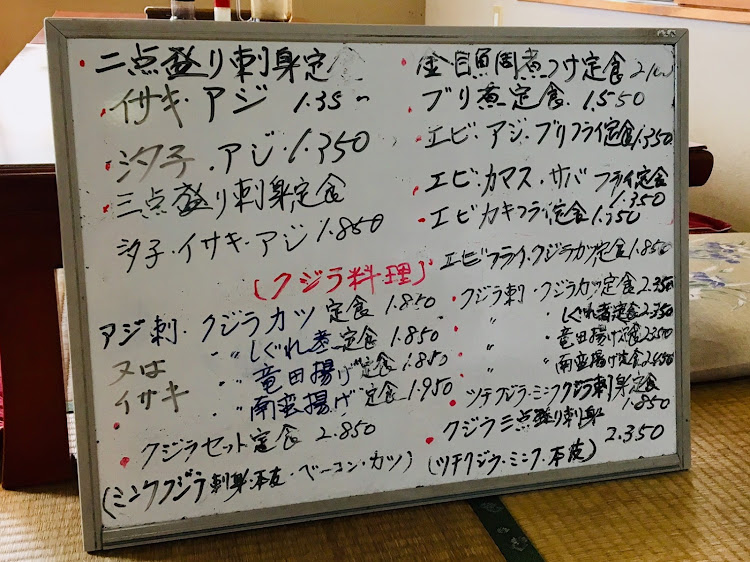 ・二点盛り刺身定食
イサキ・アジ 1.35〜
・汐子・アジ・1.350
・三点盛り刺身定食
汐子・イサキ・アジ 1.850
・金目魚周煮つけ定食 21
・ブリ煮定食・1.550
・エビ・アジ・ブリフライ定食1.350
・エビ・カマス・サバ フライ定食 1.350
・エビカキフライ定食1.350
・エビフライ・クジラカツ定食1.850
(クジラ料理)
アジ刺・クジラカツ定食 1.850
又は 〃 〃 しぐれ煮定食 1.850
〃 竜田揚げ定食 1.850
イサキ 〃 南蛮揚げ定食 1.950
・クジラセット定食 2.850
(ミンククジラ刺身・本皮・ベーコン・カツ)
・クジラ刺・クジラカツ定食2.350
〃 ・しぐれ煮定食2.350
〃 ・竜田揚げ定食
〃 南蛮揚げ定食
・ツチクジラ・ミンククジラ刺身定食 1.850
・クジラ三点盛り刺身 2.350
(ツチクジラ・ミンク・本皮)